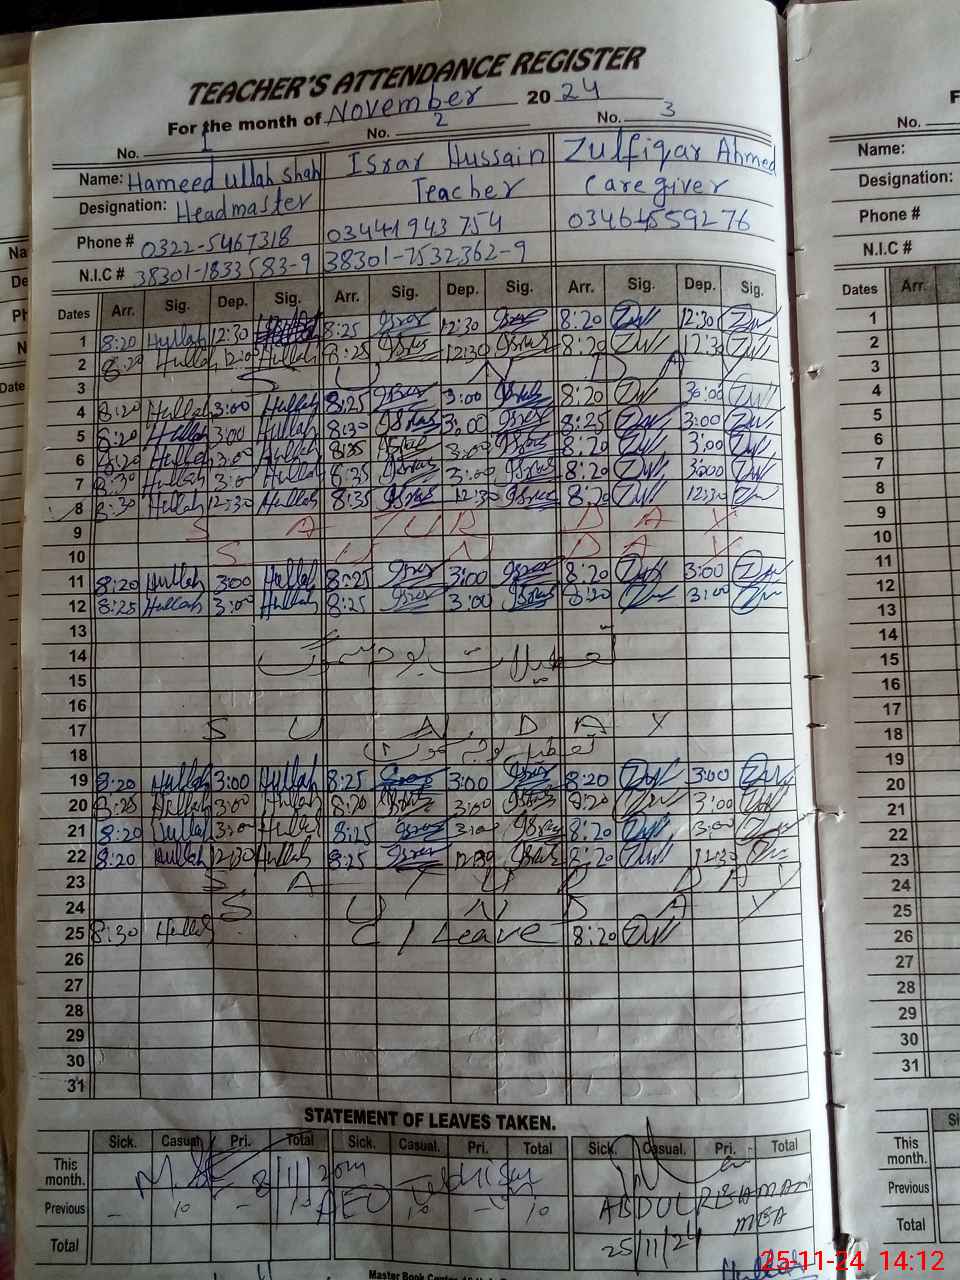 TEACHER'S ATTENDANCE REGISTER
For the month of November 2024
No. 1 No. 2 No. 3
Name: Hameed ullah shah Israr Hussain Zulfiqar Ahmed
Designation: Headmaster Teacher Care giver
Phone # 0322-5467318 03441943754
N.I.C # 38301-1833583-9 38301-7532362-9
Dates Arr. Sig. Dep. Sig. Arr. Sig. Dep. Sig. Arr. Sig. Dep. Sig.
1 8:20 Hullah 12:30 8:25 Israr 12:30 Israr 8:20 12:30
2 Hullah Hullah 8:25 Israr 12:30 Israr 8:20 12:30
3 S U N D A Y
4 8:20 Hullah 3:00 Hullah 8:25 Israr 3:00 Israr 8:20
5 8:20 Hullah 3:00 Hullah 8:30 Israr 3:00 Israr 8:25 3:00
6 8:20 Hullah 3:00 Hullah Israr 3:00 Israr 8:20 3:00
7 8:30 Hullah 3:00 Hullah 8:35 Israr 3:00 Israr 8:20 3:00
8 8:30 Hullah 12:30 Hullah 8:35 Israr 12:30 Israr 8:20 12:30
9 S A T U R D A Y
10 S U N D A Y
11 8:20 Hullah 3:00 Hullah 8:25 Israr 3:00 Israr 8:20 3:00
12 8:25 Hullah 3:00 Hullah 8:25 Israr 3:00 Israr 8:20 3:00
13
14 تعطیلات بوجہ سموگ
15
16
17 S U N D A Y
18 تعطیل بوجہ سموگ
19 8:20 Hullah 3:00 Hullah 8:25 Israr 3:00 Israr 8:20 3:00
20 8:25 Hullah 3:00 Hullah 8:20 Israr 3:00 Israr 8:20 3:00
21 8:20 Hullah 3:00 Hullah 8:25 Israr 3:00 Israr 8:20 3:00
22 8:20 Hullah 12:30 Hullah 8:25 Israr 12:30 Israr 8:20 12:30
23 S A T U R D A Y
24 S U N D A Y
25 8:30 Hullah C/Leave 8:20
26
27
28
29
30
31
STATEMENT OF LEAVES TAKEN.
Sick. Casual. Pri. Total Sick. Casual. Pri. Total Sick. Casual. Pri. Total
This month.
Previous - 10 - 10 AEO 10 - 10 ABDUL REHMAN
MEA
Total 25/11/24
Master Book Center
No.
Name:
Designation:
Phone #
N.I.C #
Dates Arr.
1
2
3
4
5
6
7
8
9
10
11
12
13
14
15
16
17
18
19
20
21
22
23
24
25
26
27
28
29
30
31
This month.
Previous
Total
25-11-24 14:12